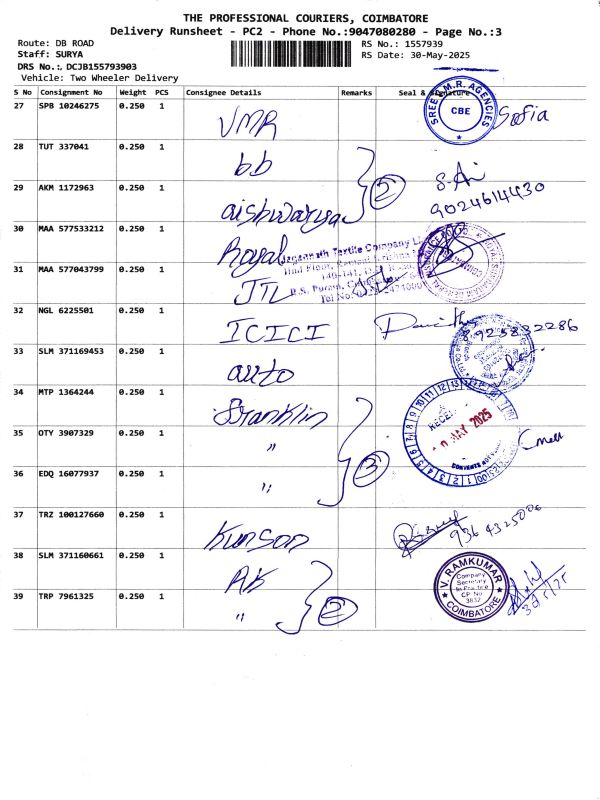 THE PROFESSIONAL COURIERS, COIMBATORE
Delivery Runsheet - PC2 - Phone No.:9047080280 - Page No.:3
Route: DB ROAD
RS No.: 1557939
Staff: SURYA
RS Date: 30-May-2025
DRS No.:. DCJB155793903
Vehicle: Two Wheeler Delivery
S No Consignment No Weight PCS Consignee Details Remarks Seal & Signature
27 SPB 10246275 0.250 1 VMR CBE Sofia
28 TUT 337041 0.250 1 bb
29 AKM 1172963 0.250 1 aishwarya 2 9024614430
30 MAA 577533212 0.250 1 Royal
Jagannath Textile Company
31 MAA 577043799 0.250 1 JTL
32 NGL 6225501 0.250 1 ICICI 8925832286
33 SLM 371169453 0.250 1 auto
34 MTP 1364244 0.250 1 Franklin
35 OTY 3907329 0.250 1 " 3 MAY 2025
36 EDQ 16077937 0.250 1 "
37 TRZ 100127660 0.250 1 Kunson
38 SLM 371160661 0.250 1 AK V. RAMKUMAR
Company
Secretary
in Practice
CP No
3832
COIMBATORE
39 TRP 7961325 0.250 1 " 2 30/5/25